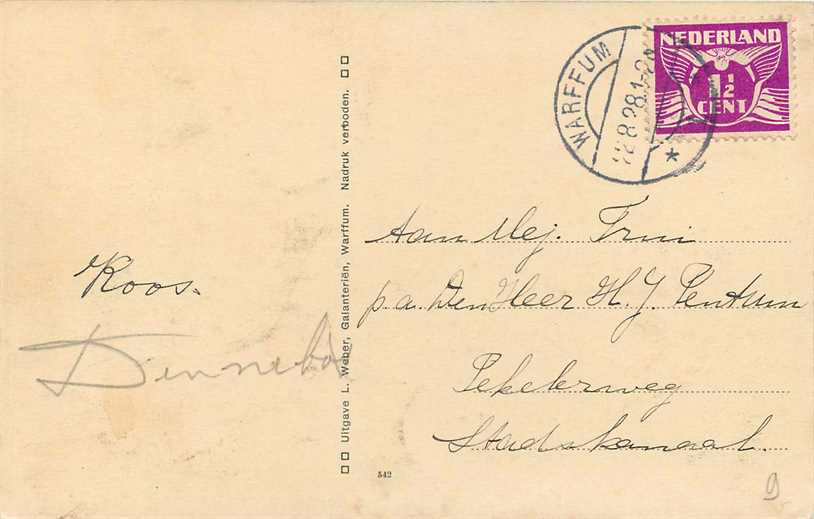 NEDERLAND
1½
CENT
WARFFUM
8.28.1-
Koos.
Uitgave L. Weber, Galanteriën, Warffum. Nadruk verboden.
542
Aan Mej. Trui
p.a. Den Heer H. J. Pentum
Pekelerweg
Stadskanaal.
9